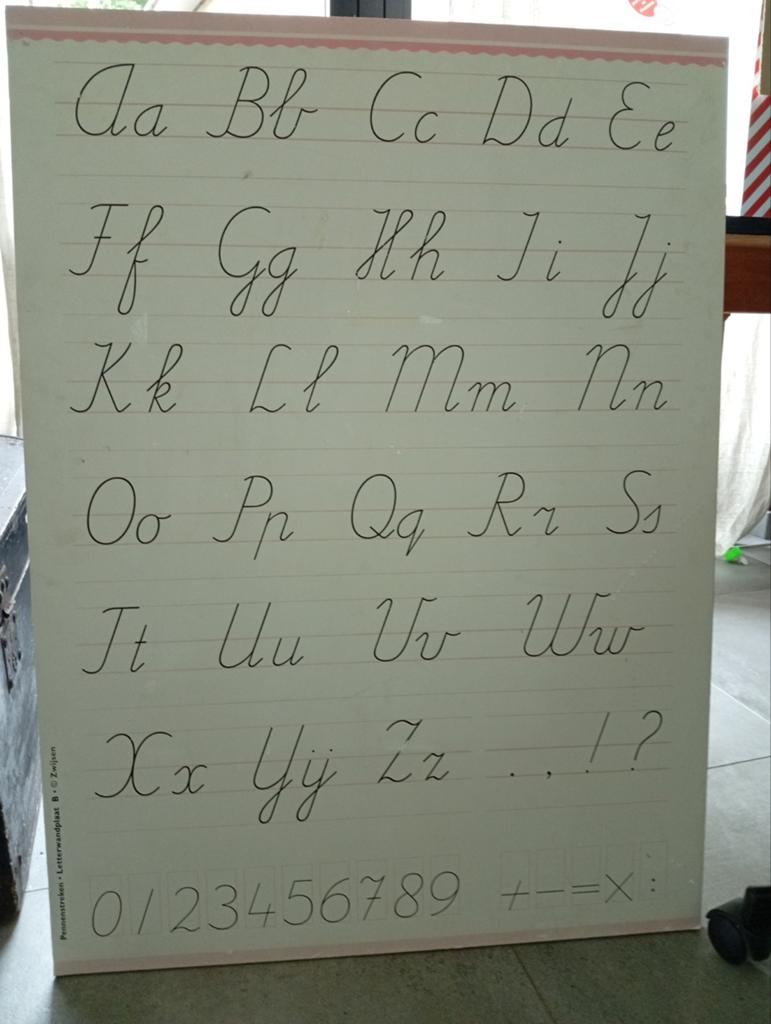 Aa Bb Cc Dd Ee
Ff Gg Hh Ii Jj
Kk Ll Mm Nn
Oo Pp Qq Rr Ss
Tt Uu Vv Ww
Xx Yij Zz . , ! ?
0 1 2 3 4 5 6 7 8 9 + - = × :
Pennenstreken • Letterwandplaat B • © Zwijsen